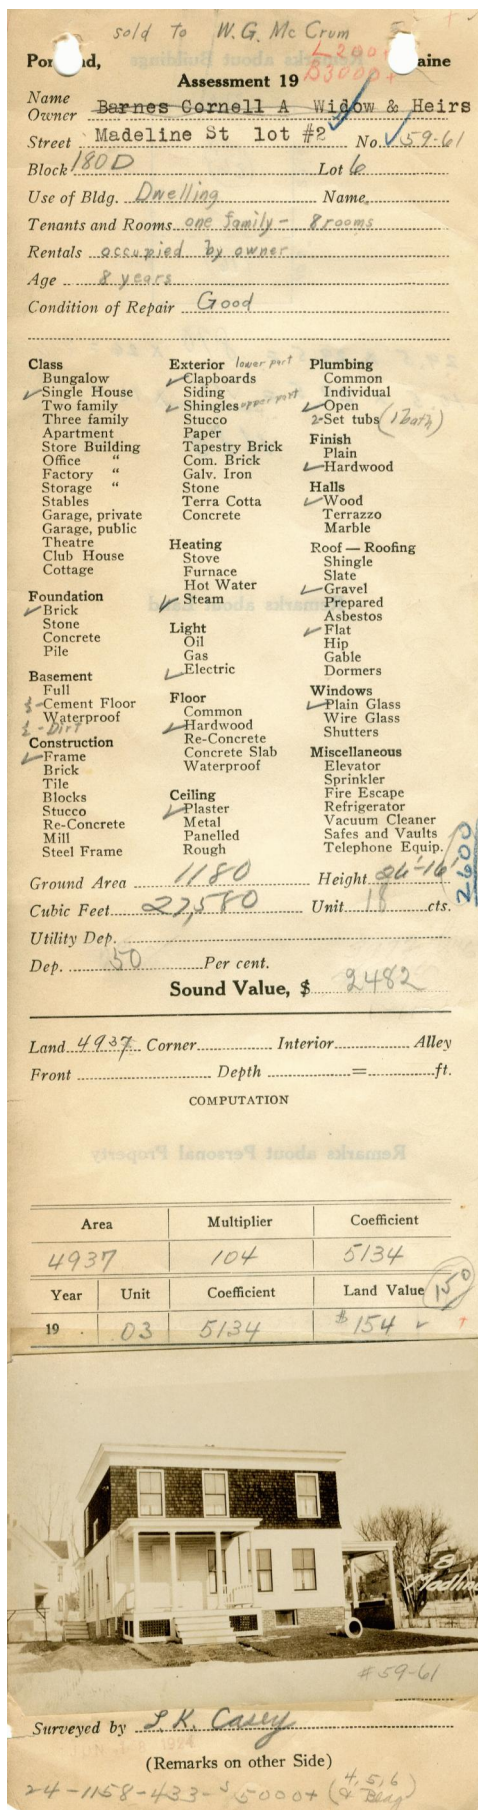 sold to W. G. Mc Crum
L 200+
B3000+
Portland, Maine
Assessment 19
Name
Owner Barnes Cornell A Widow & Heirs
Street Madeline St lot #2 No. 59-61
Block 180D Lot 6
Use of Bldg. Dwelling Name
Tenants and Rooms one family - 8 rooms
Rentals occupied by owner
Age 8 years
Condition of Repair Good
Class
Bungalow
✓ Single House
Two family
Three family
Apartment
Store Building
Office "
Factory "
Storage "
Stables
Garage, private
Garage, public
Theatre
Club House
Cottage
Foundation
✓ Brick
Stone
Concrete
Pile
Basement
Full
½ - Cement Floor
Waterproof
½ - Dirt
Construction
✓ Frame
Brick
Tile
Blocks
Stucco
Re-Concrete
Mill
Steel Frame
Exterior lower part
✓ Clapboards
Siding
✓ Shingles upper part
Stucco
Paper
Tapestry Brick
Com. Brick
Galv. Iron
Stone
Terra Cotta
Concrete
Heating
Stove
Furnace
Hot Water
✓ Steam
Light
Oil
Gas
✓ Electric
Floor
Common
✓ Hardwood
Re-Concrete
Concrete Slab
Waterproof
Ceiling
✓ Plaster
Metal
Panelled
Rough
Plumbing
Common
Individual
✓ Open
2- Set tubs (1 bath)
Finish
Plain
✓ Hardwood
Halls
✓ Wood
Terrazzo
Marble
Roof — Roofing
Shingle
Slate
✓ Gravel
Prepared
Asbestos
✓ Flat
Hip
Gable
Dormers
Windows
✓ Plain Glass
Wire Glass
Shutters
Miscellaneous
Elevator
Sprinkler
Fire Escape
Refrigerator
Vacuum Cleaner
Safes and Vaults
Telephone Equip.
2600
Ground Area 1180 Height 26'-16'
Cubic Feet 27,580 Unit 18 cts.
Utility Dep.
Dep. 50 Per cent.
Sound Value, $ 2482
Land 4937 Corner Interior Alley
Front Depth = ft.
COMPUTATION
Remarks about Personal Property
Area Multiplier Coefficient
4937 104 5134
Year Unit Coefficient Land Value 150
19 03 5134 $154 ✓ +
8
Madline
#59-61
Surveyed by L. K. Casey
(Remarks on other Side)
24-1158-433-$5000+ (4,5,6 & Bldg)